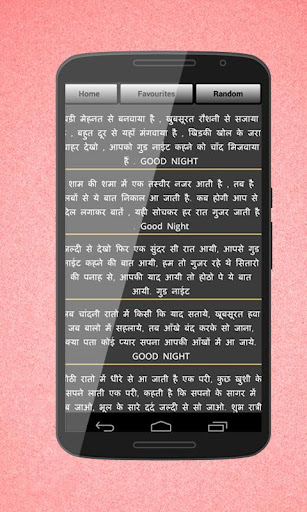 Home
Favourites
Random
बड़ी मेहनत से बनवाया है , खुबसूरत रौशनी से सजाया
, बहुत दूर से यहाँ मंगवाया है , खिडकी खोल के जरा
बाहर देखो , आपको गुड नाईट कहने को चाँद मिजवाया
हैं . GOOD NIGHT
शाम की शमा में एक तस्वीर नजर आती है , तब है
लबों से ये बात निकाल आ जाती है. कब होगी आप से
दिल लगाकर बातें , यही सोचकर हर रात गुजर जाती है
. Good Night
जल्दी से देखो फिर एक सुंदर सी रात आयी, आपसे गुड
नाईट कहने की बात आयी, हम तो गुजर रहे थे सितारो
की पनाह से, आपकी याद आयी तो होठो पे ये बात
आयी. गुड नाईट
जब चांदनी रातो में किसी कि याद सताये, खूबसूरत हवा
जब बालो में सहलाये, तब आँखे बंद करके सो जाना,
क्या पता कोई प्यार सपना आपकी आँखों में आ जाये.
GOOD NIGHT
मीठी रातो में धीरे से आ जाती है एक परी, कुछ खुशी के
सपने लाती एक परी, कहती है कि सपनो के सागर में
डूब जाओ, भूल के सारे दर्द जल्दी से सो जाओ. शुभ रात्री